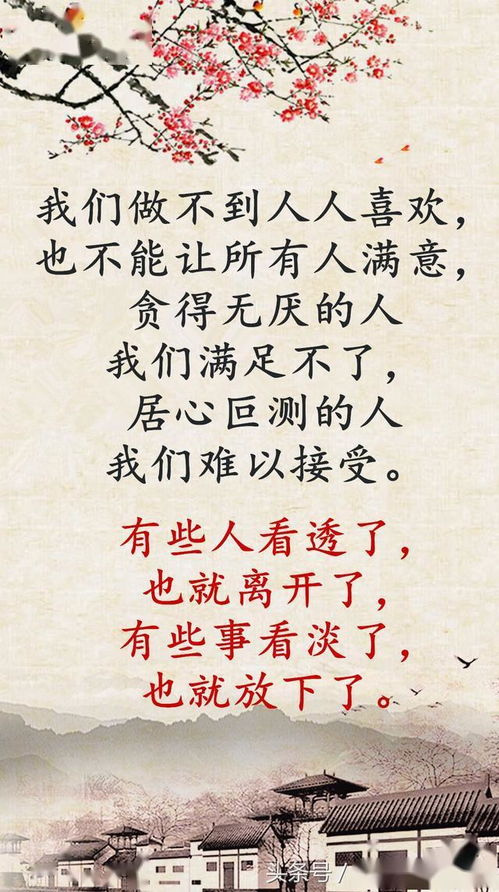 我们做不到人人喜欢，
也不能让所有人满意，
贪得无厌的人
我们满足不了，
居心叵测的人
我们难以接受。
有些人看透了，
也就离开了，
有些事看淡了，
也就放下了。
头条号 /